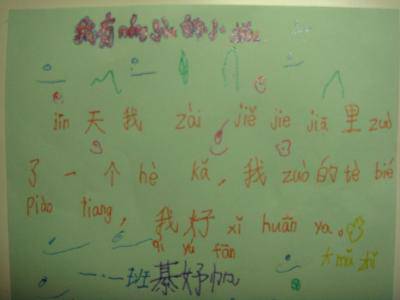 我有 的小
jīn 天我 zài jiě jie jiā 里 zuò
了一个 hè kǎ, 我 zuò 的 tè bié
piào liang, 我好 xǐ huān ya。
qí yú fān 大 mǔ zhǐ
一·一班 綦妤帆